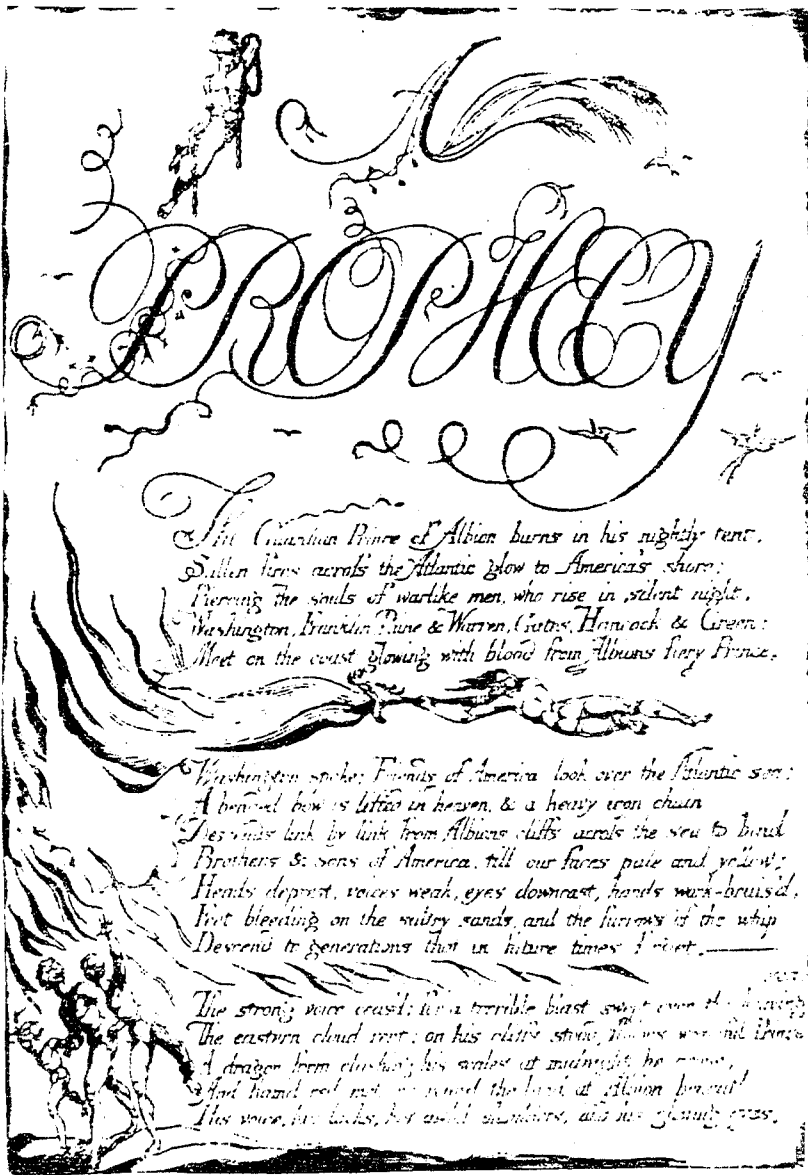 A
PROPHECY
The Guardian Prince of Albion burns in his nightly tent,
Sullen fires across the Atlantic glow to America's shore:
Piercing the souls of warlike men, who rise in silent night,
Washington, Franklin, Paine & Warren, Gates, Hancock & Green:
Meet on the coast glowing with blood from Albions fiery Prince.
Washington spoke; Friends of America look over the Atlantic sea;
A bended bow is lifted in heaven, & a heavy iron chain
Descends link by link from Albions cliffs across the sea to bind
Brothers & sons of America, till our faces pale and yellow;
Heads deprest, voices weak, eyes downcast, hands work-bruis'd,
Feet bleeding on the sultry sands, and the furrows of the whip
Descend to generations that in future times forget.
The strong voice ceas'd; for a terrible blast swept over the heaving
The eastern cloud rent; on his cliffs stood Albions wrathful Prince
A dragon form clashing his scales at midnight he arose,
And red the land of Albion beneath
His voice, his locks, his awful shoulders, and his glowing eyes,